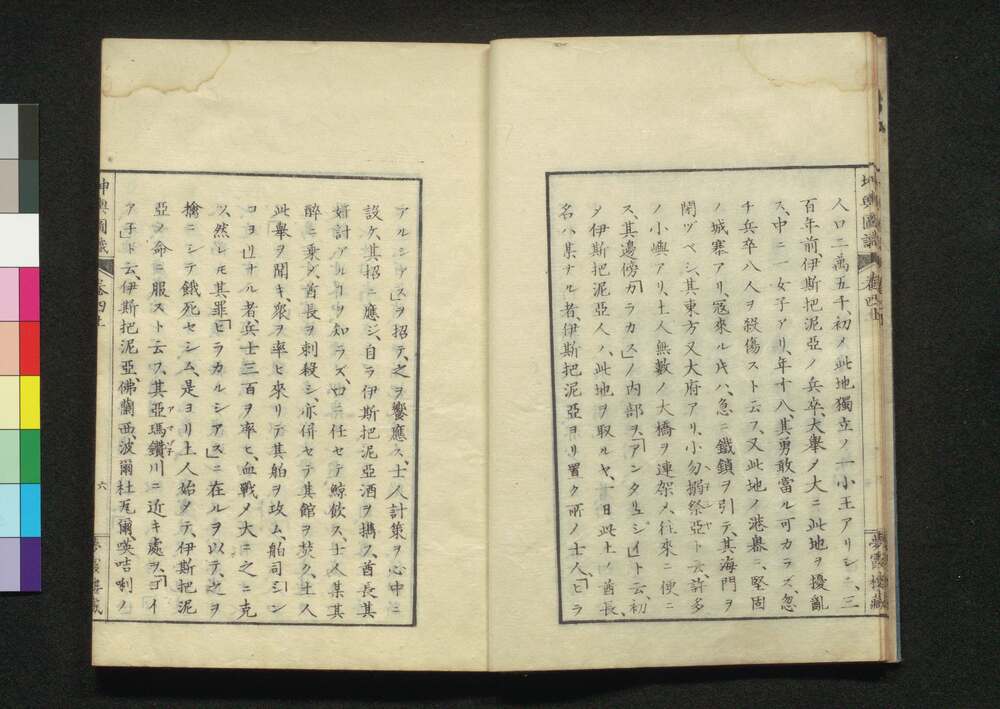 坤輿圖識
卷四上
夢霞樓藏
人口二萬五千、初メ此地獨立ノ一小王アリシニ、三
百年前、伊斯把泥亞ノ兵卒、大擧メ大ニ此地ヲ擾亂
ス、中ニ一女子アリ、年十八、其勇敢當ル可カラズ、忽
チ兵卒八人ヲ殺傷スト云フ、又此地ノ港
ノ城寨アリ、冦來ル片ハ、急ニ鐵鎖ヲ引テ、其海門ヲ
閉ヅベシ、其東方又大府アリ、小勿搦祭亞ト云、許多
ノ小嶼アリ、土人無數ノ大橋ヲ連架メ、往來ニ便ニ
ス、其邊傍「カラカス」ノ内部ス、
タ伊斯把泥亞人、此地ヲ取ルヤ、日此土ノ酋長、
名ハ某ナル者、伊斯把泥亞ヨリ置ク所ノ士人、「ヒラ
アルシアス」ヲ招テ、之ヲ饗應ス、士人計策ヲ心中ニ
設ケ、其招ニ應ジ、自ラ伊斯把泥亞酒ヲ攜ス、酋長其
奸計アルヿヲ知ラズ、口ニ任セテ鯨飲ス、士人某其
醉ニ乘ジ、酋長ヲ刺殺シ、亦併セテ其館ヲ焚ク、土人
此擧ヲ聞キ、衆ヲ率ヒ來リテ其舶ヲ攻ム、舶司「シン
コヨ」ナル者、兵士三百ヲ率ヒ、血戰メ大ニ之ニ克
ツ、然レモ其罪「ヒラカルシアス」ニ在ルヲ以テ、之ヲ
擒ニシテ餓死セシム、是ヨリ土人始メテ、伊斯把泥
亞ノ命ニ服スト云フ、其亞瑪鑽川ニ近キ處ヲ、「ゴイ
ア子」ト云、伊斯把泥亞佛蘭西、波爾杜瓦爾、暎咭唎ノ
坤輿圖識
卷四上
六
夢霞樓藏